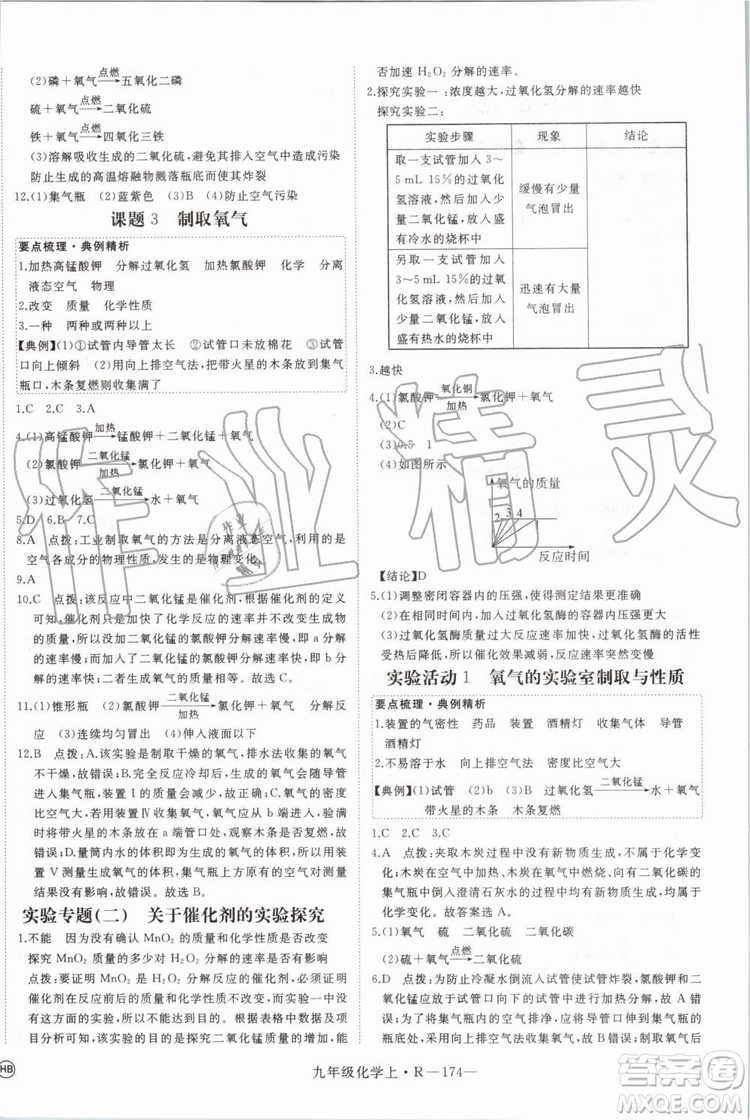 (2)磷+氧气 点燃→ 五氧化二磷
硫+氧气 点燃→ 二氧化硫
铁+氧气 点燃→ 四氧化三铁
(3)溶解吸收生成的二氧化硫,避免其排入空气中污染
防止生成的高温熔融物溅落瓶底而使瓶底炸裂
12.(1)集气瓶 (2)蓝紫色 (3)B (4)防止空气污染
课题 3 制取氧气
要点梳理·典例精析
1.加热高锰酸钾 分解过氧化氢 加热氯酸钾 化学 分离
液态空气 物理
2.改变 质量 化学性质
3.一种 两种或两种以上
【典例】(1)①试管内导管太长 ②试管口未放棉花 ③试管
口向上倾斜 (2)用向上排空气法,把带火星的木条放到集气
瓶口,木条复燃则收集满了
1.C 2.C 3.A
4.(1)高锰酸钾 加热→ 锰酸钾+二氧化锰+氧气
(2)氯酸钾 二氧化锰 加热→ 氯化钾+氧气
(3)过氧化氢 二氧化锰→ 水+氧气
5.D 6.B 7.C
8.A 点拨:工业制取氧气的方法是分离液态空气,利用的是
空气各成分的物理性质,发生的是物理变化。
9.A
10.C 点拨:该反应中二氧化锰是催化剂,根据催化剂的定义可
知,催化剂只是加快了化学反应的速率并不改变生成物
的质量,因此不加二氧化锰的氯酸钾速率慢,即 a 分解
的速率慢;加二氧化锰的氯酸钾分解的速率快,即 b 分
解的速率快,但二者质量相等,所以最终产生的氧气的
质量也相等。故选 C
11.(1)锥形瓶 (2)氯酸钾 二氧化锰 加热→ 氯化钾+氧气
(3)连续均匀冒出 (4)伸入液面以下
12.B 点拨:A.该实验是制取干燥的氧气,排水法收集的氧气
不干燥,故错误;B.多孔塑料片能控制固液分离从而控
制反应的发生和停止,故正确;C.氧气的密度
比空气大,若用装置Ⅳ收集氧气,氧气应从 b 端进入,验满
时将带火星的木条放在 a 端管口处,观察木条是否复燃,
故错误;D.量筒中水的体积即为生成的氧气的体积,装
置 V 测量生成氧气的体积时,集气瓶中原有的空气对实验
结果没有影响,故错误。故选 B
实验专题(二) 关于催化剂的实验探究
1.不能 因为没有确认 MnO₂ 的质量和化学性质是否改变
探究 MnO₂ 质量的多少对 H₂O₂ 分解的速率是否有影响
点拨:要证明 MnO₂ 是 H₂O₂ 分解反应的催化剂,还需验
证催化剂在反应前后质量和化学性质不变;根据数据及项
目分析可知,本实验探究二氧化锰质量的多少不同时,能
否加速 H₂O₂ 分解的速率。
2.探究实验一:浓度越大,过氧化氢分解的速率越快
探究实验二:
实验步骤 现象 结论
取一支试管加入 3~
5 mL 15%的过氧化
氢溶液,然后加入少
量二氧化锰,放入盛
有冷水的烧杯中
缓慢有少量
气泡冒出
另取一支试管加入
3~5 mL 15%的过氧
化氢溶液,然后加入
少量二氧化锰,放入
盛有热水的烧杯中
迅速有大量
气泡冒出
3.越快
4.(1)氯酸钾 氧化铜 加热→ 氯化钾+氧气
(2)C
(3)0.5 1
(4)如图所示
氧气的质量
2 3 4 1
反应时间
【结论】D
5.(1)平衡容器内外的压强,使所测定实验结果准确
(2)在相同时间内,测定加入过氧化氢酶的容器内压强大
(3)过氧化氢酶质量过大反应速率加快,过氧化氢酶的活性
受抑制,催化效果减弱,反应速率变慢
实验活动 1 氧气的实验室制取与性质
要点梳理·典例精析
1.装置的气密性 药品 装置 酒精灯 收集气体 导管
酒精灯
2.不易溶于水 向上排空气法 密度比空气大
【典例】(1)试管 (2)b (3)过氧化氢 二氧化锰→ 水+氧气
带火星的木条 木条复燃
1.C 2.C 3.C
4.A 点拨:夹取木炭过程中没有新物质生成,不属于化学变
化;点燃木炭、木炭燃烧过程中有新物质生成二氧化碳,向
集气瓶中倒入澄清石灰水中的过程中,二氧化碳与氢氧化
钙反应生成碳酸钙。故答案选 A
5.(1)氧气 硫 二氧化硫 二氧化硫
(2)硫+氧气 点燃→ 二氧化硫
6.D 点拨:为防止冷凝水倒流入试管使试管炸裂,氯酸钾和
二氧化锰应放在试管口略向下的试管中加热,不能放在
九年级化学上·R—174—
HB